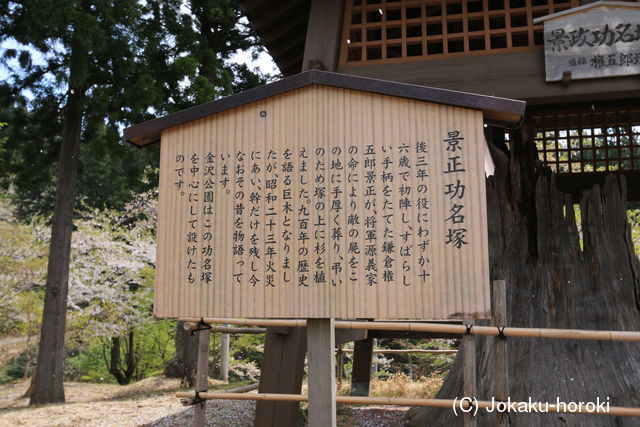 景正功名塚
後三年の役にわずか十
六歳で初陣し、すばらし
い手柄をたてた鎌倉権
五郎景正が、将軍源義家
の命により敵の屍をこ
の地に手厚く葬り、弔い
のため塚の上に杉を植
えました。九百年の歴史
を語る巨木となりまし
たが昭和二十三年火災
にあい、幹だけを残し今
なおその昔を物語って
います。
金沢公園はこの功名塚
を中心にして設けたも
のです。
景政功名塚
権五郎
(C) Jokaku-horoki